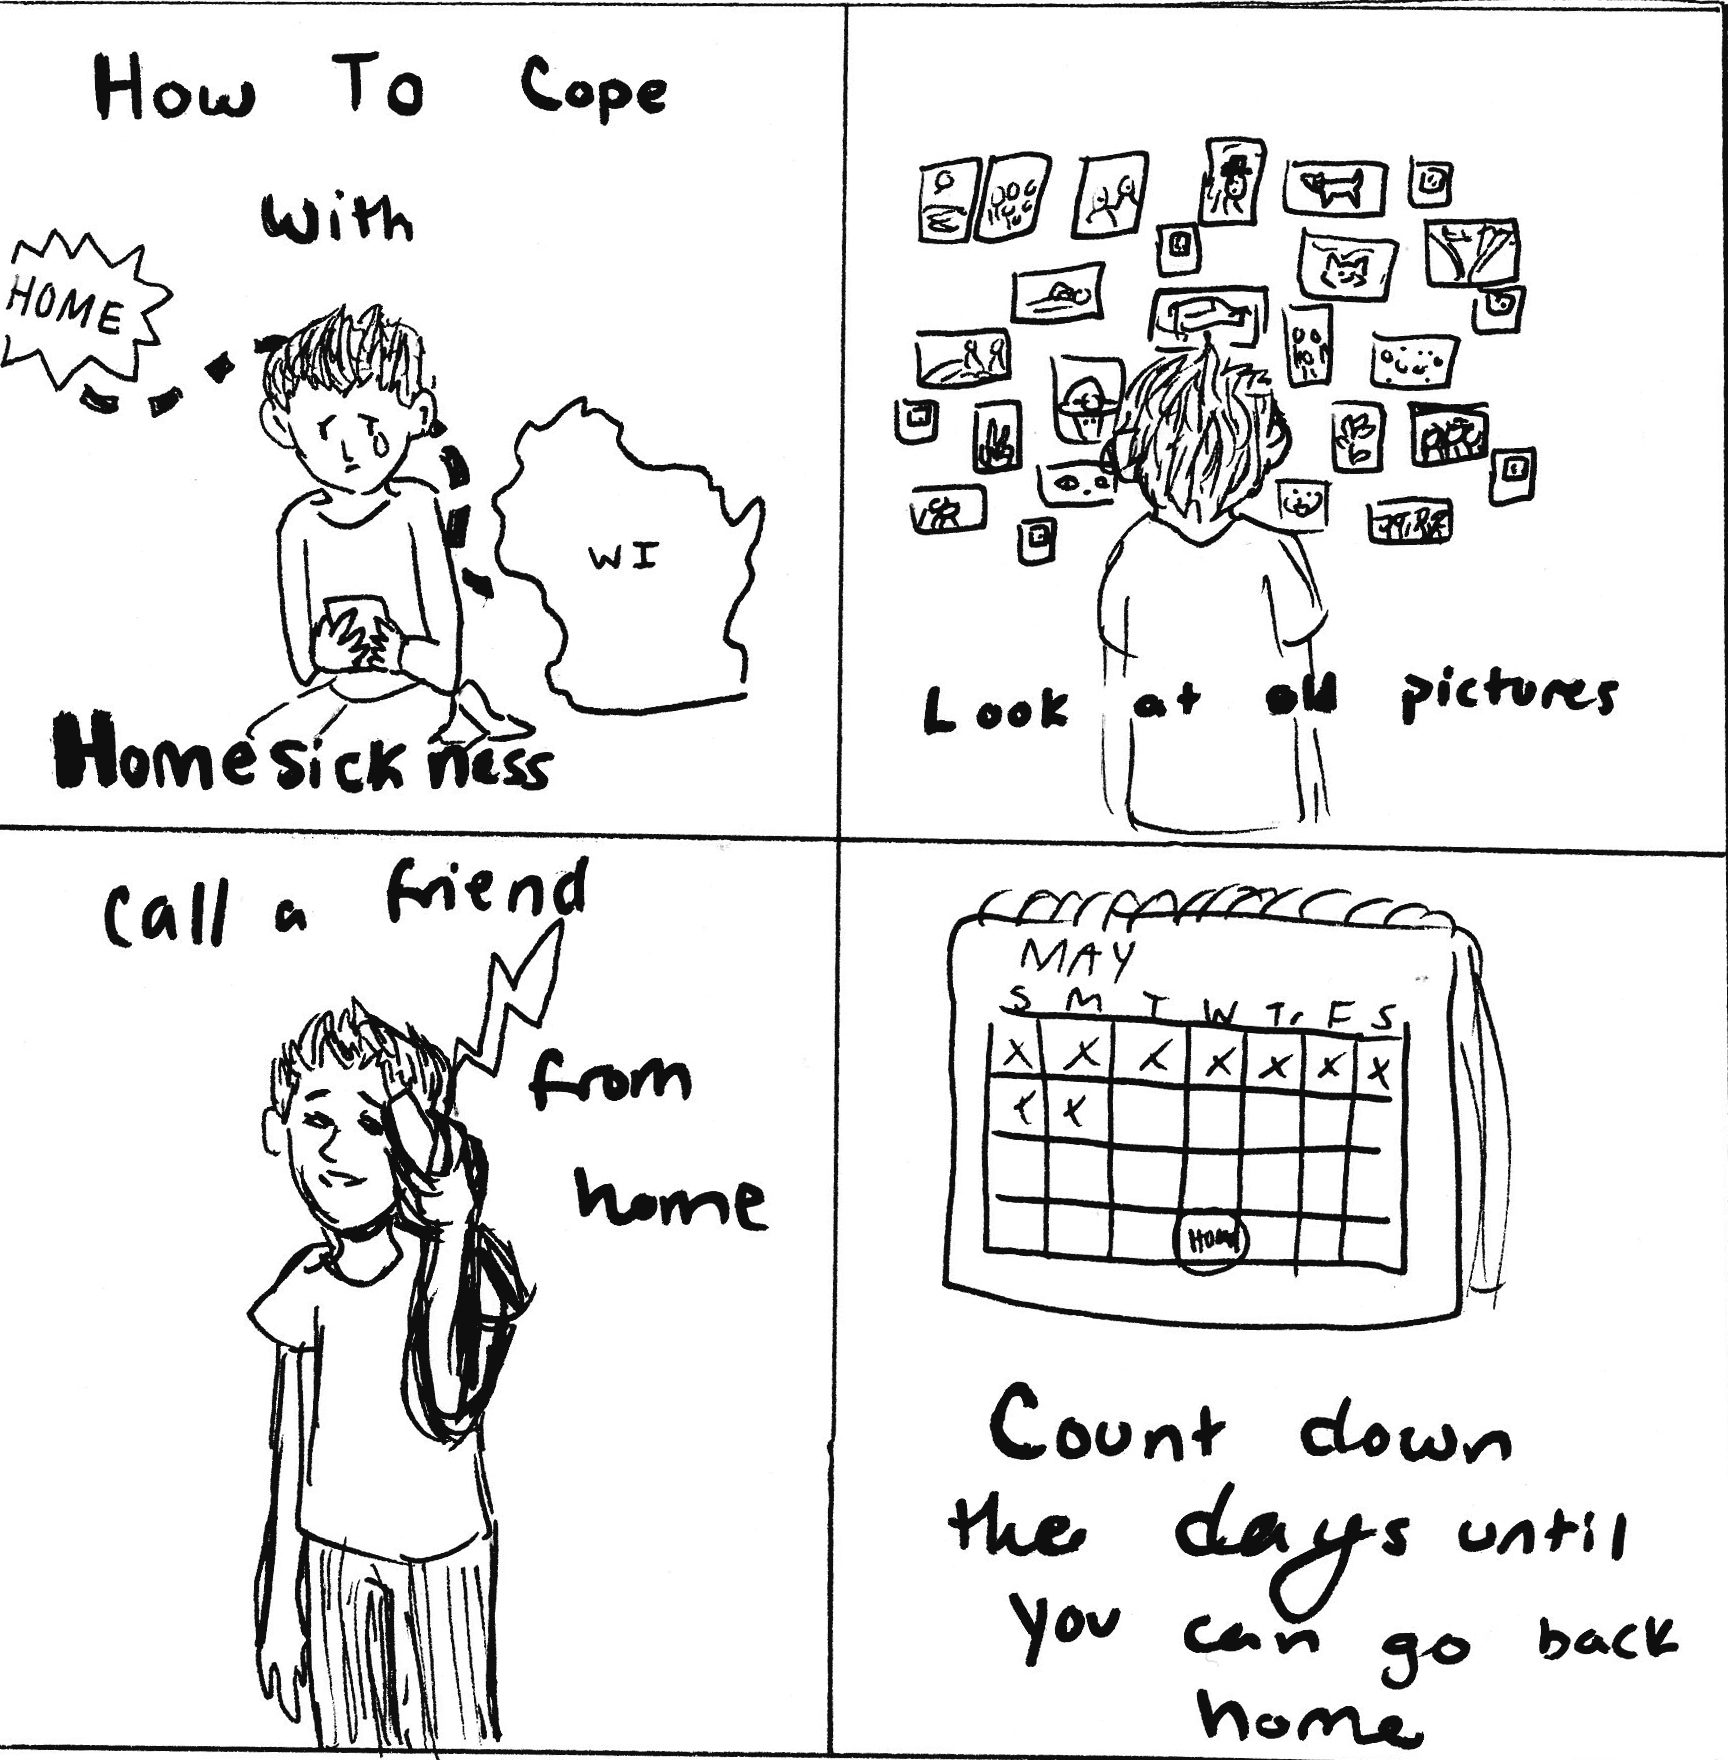 How To Cope
with
HOME
WI
Homesickness
Look at old pictures
Call a friend
from
home
MAY
S M T W Tr F S
X X X X X X X
X X
Home
Count down
the days until
you can go back
home